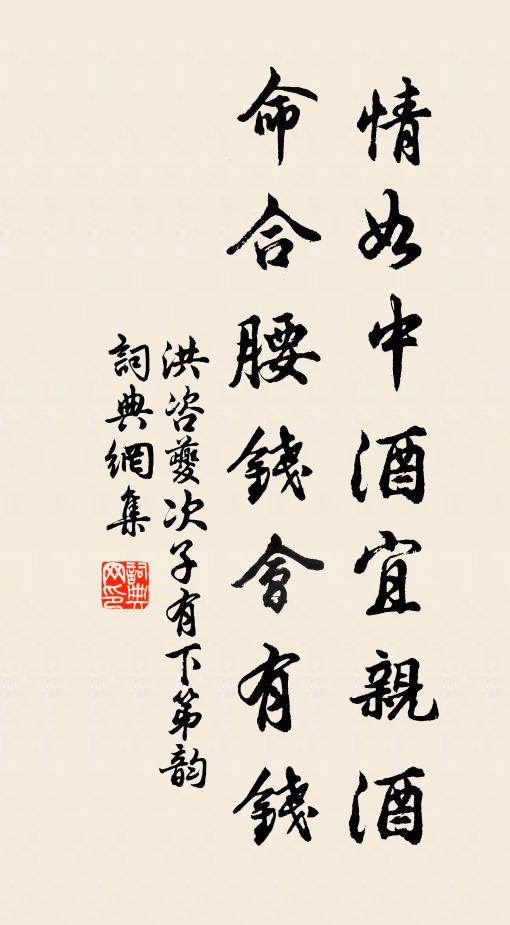 情如中酒宜親酒
命合腰錢會有錢
洪咨夔次子有下第韵
詞典網集
詞典网印